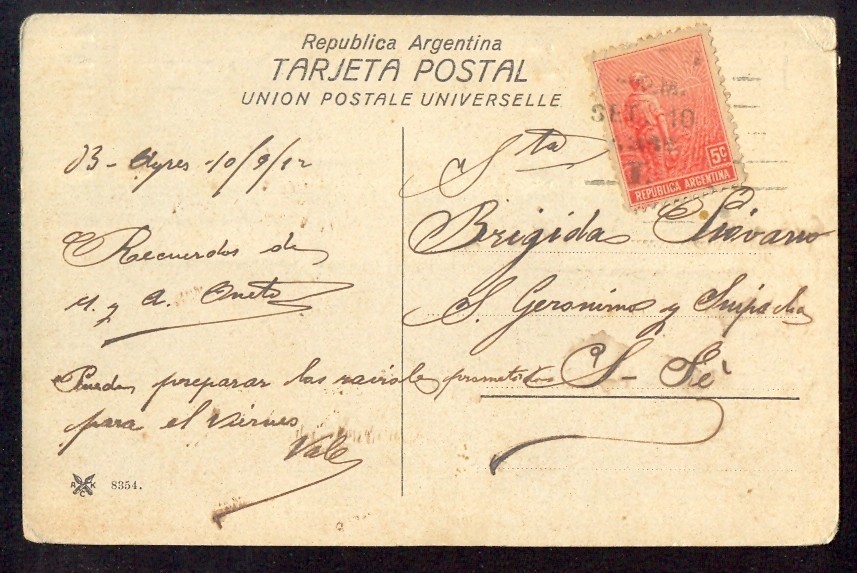 Republica Argentina
TARJETA POSTAL
UNION POSTALE UNIVERSELLE
SET 10
5c
REPUBLICA ARGENTINA
B- Ayres 10/9/12
Recuerdos de
M. y A. Oneto
Puede preparar los raviole prometidos
para el viernes
Vale
Sta
Brigida
S. Geronimo y Suipacha
S- Fé
A K C 8354.